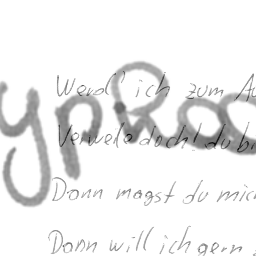 Werd' ich zum Au
Verweile doch! du bi
Dann magst du mich
Dann will ich gern